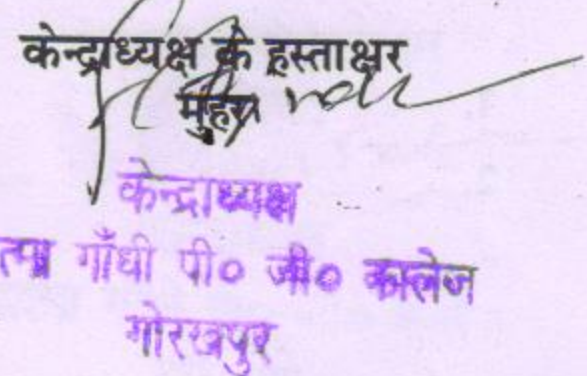 केन्द्राध्यक्ष के हस्ताक्षर
मुहर
केन्द्राध्यक्ष
त्मा गाँधी पी० जी० कालेज
गोरखपुर